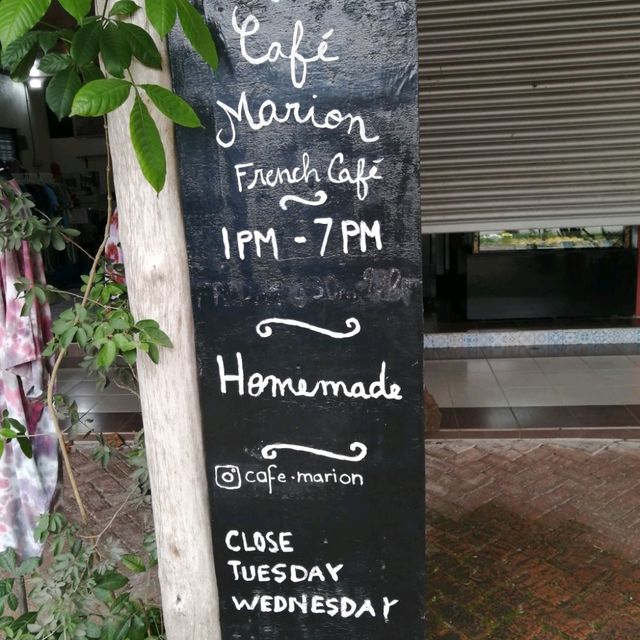 Café
Marion
French Café
1PM - 7PM
Homemade
cafe.marion
CLOSE
TUESDAY
WEDNESDAY